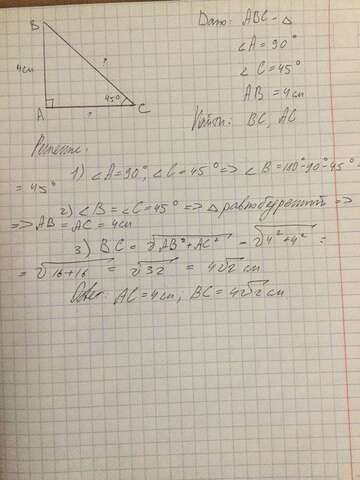 B
4см
?
45°
A
?
C
Дано: ABC - Δ
∠A = 90°
∠C = 45°
AB = 4см
Найти: BC, AC
Решение:
1) ∠A = 90°, ∠C = 45° => ∠B = 180° - 90° - 45° =
= 45°
2) ∠B = ∠C = 45° => Δ равнобедренный =>
=> AB = AC = 4см
3) BC = √AB² + AC² = √4² + 4² =
= √16+16 = √32 = 4√2 см
Ответ: AC = 4см, BC = 4√2 см